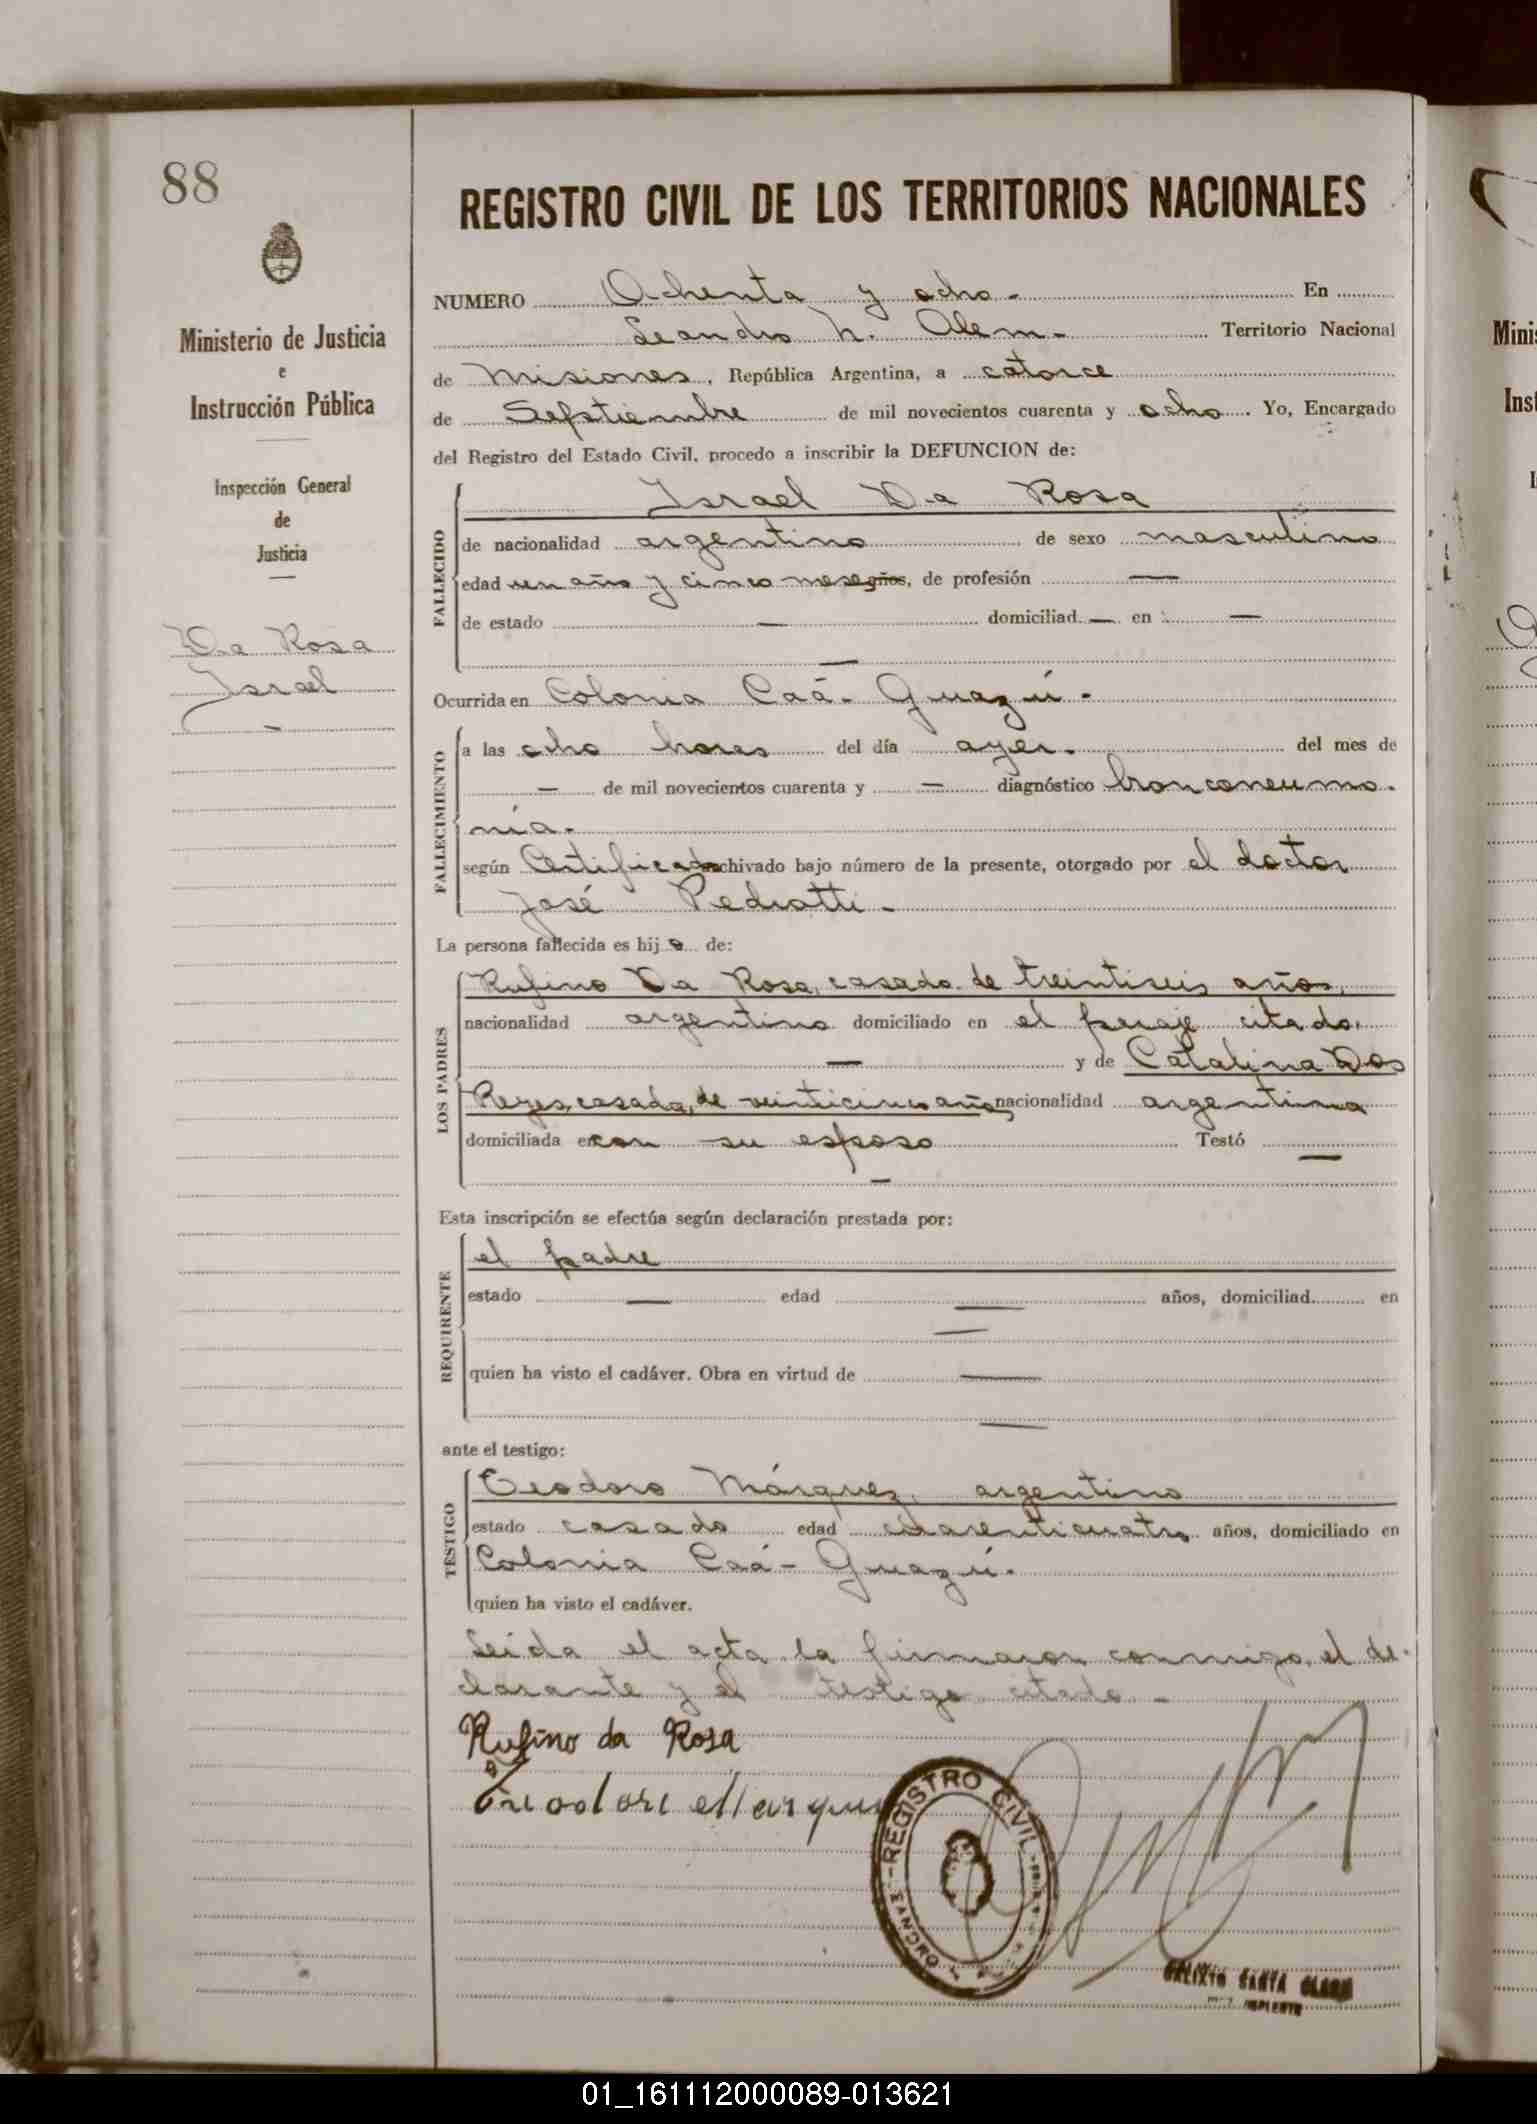 88
Ministerio de Justicia
e
Instrucción Pública
Inspección General
de
Justicia
Da Rosa
Israel
REGISTRO CIVIL DE LOS TERRITORIOS NACIONALES
NUMERO Ochenta y ocho.- En
Leandro N. Alem.- Territorio Nacional
de Misiones, República Argentina, a catorce
de Septiembre de mil novecientos cuarenta y ocho. Yo, Encargado
del Registro del Estado Civil, procedo a inscribir la DEFUNCION de:
FALLECIDO
Israel Da Rosa
de nacionalidad argentino de sexo masculino
edad un año y cinco meses años, de profesión —
de estado — domiciliad — en —
—
Ocurrida en Colonia Caá-Guazú.-
FALLECIMIENTO
a las ocho horas del día ayer. del mes de
— de mil novecientos cuarenta y — diagnóstico bronconeumo-
nía.
según Certificado archivado bajo número de la presente, otorgado por el doctor
José Pedrotti.-
La persona fallecida es hijo de:
LOS PADRES
Rufino Da Rosa, casado de treintiseis años,
nacionalidad argentino domiciliado en el paraje citado,
— y de Catalina Dos
Reyes, casada, de veinticinco años, nacionalidad argentina
domiciliada en con su esposo Testó —
—
Esta inscripción se efectúa según declaración prestada por:
REQUIRENTE
el padre
estado — edad — años, domiciliad en
—
quien ha visto el cadáver. Obra en virtud de —
—
ante el testigo:
TESTIGO
Teodoro Márquez, argentino
estado casado edad cuarenticuatro años, domiciliado en
Colonia Caá-Guazú.
quien ha visto el cadáver.
Leída el acta la firmaron conmigo, el de-
clarante y el testigo citado.-
Rufino da Rosa
REGISTRO CIVIL
CALIXTO SANTA CLARA
01_161112000089-013621